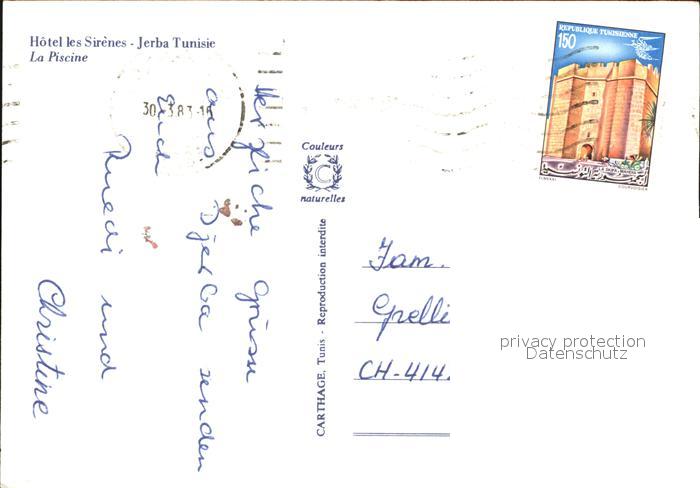 Hôtel les Sirènes - Jerba Tunisie
La Piscine
REPUBLIQUE TUNISIENNE
150
30.3.83-16
Herzliche Grüsse
aus Djerba senden
Euch
Ruedi und
Christine
Couleurs
C
naturelles
CARTHAGE, Tunis - Reproduction interdite
Fam.
Gpelli
CH-414.
privacy protection
Datenschutz